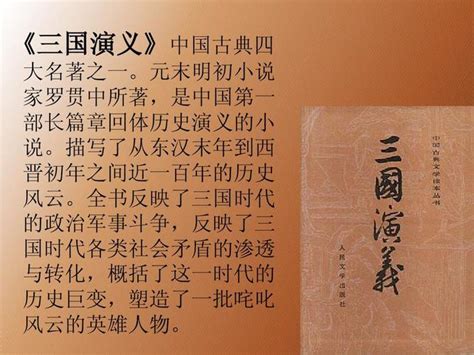 《三国演义》中国古典四
大名著之一。元末明初小说
家罗贯中所著，是中国第一
部长篇章回体历史演义的小
说。描写了从东汉末年到西
晋初年之间近一百年的历史
风云。全书反映了三国时代
的政治军事斗争，反映了三
国时代各类社会矛盾的渗透
与转化，概括了这一时代的
历史巨变，塑造了一批咤叱
风云的英雄人物。
中国古典文学读本丛书
三國演義
人民文学出版社